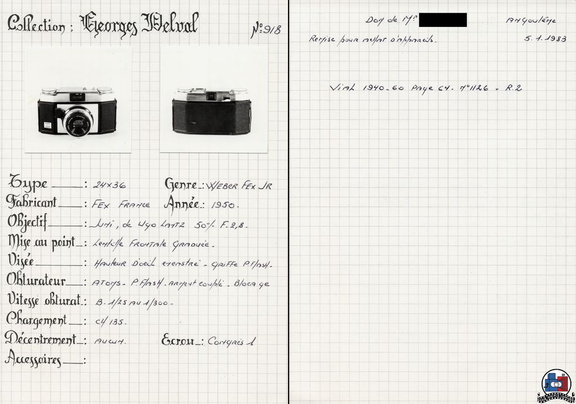 Collection : Georges Delval N°: 918
Type : 24x36 Genre : WEBER FEX JR
Fabricant : FEX FRANCE Année : 1950.
Objectif : de Ugo Lantz 50% F. 2,8.
Mise au point : Lentille Frontale Graduée.
Visée : Hauteur D'oeil - Griffe P. Flash.
Obturateur : ATOMS - P. Flash. Armement couplé - Blocage
Vitesse obturat. : B. 1/25 au 1/300.
Chargement : CH 135.
Décentrement : AUCUN. Ecrou : Congrès 1
Accessoires :
Don de Mr Angoulême
5.1.1983
Vial 1940-60 Page 64. N°1126 - R.2